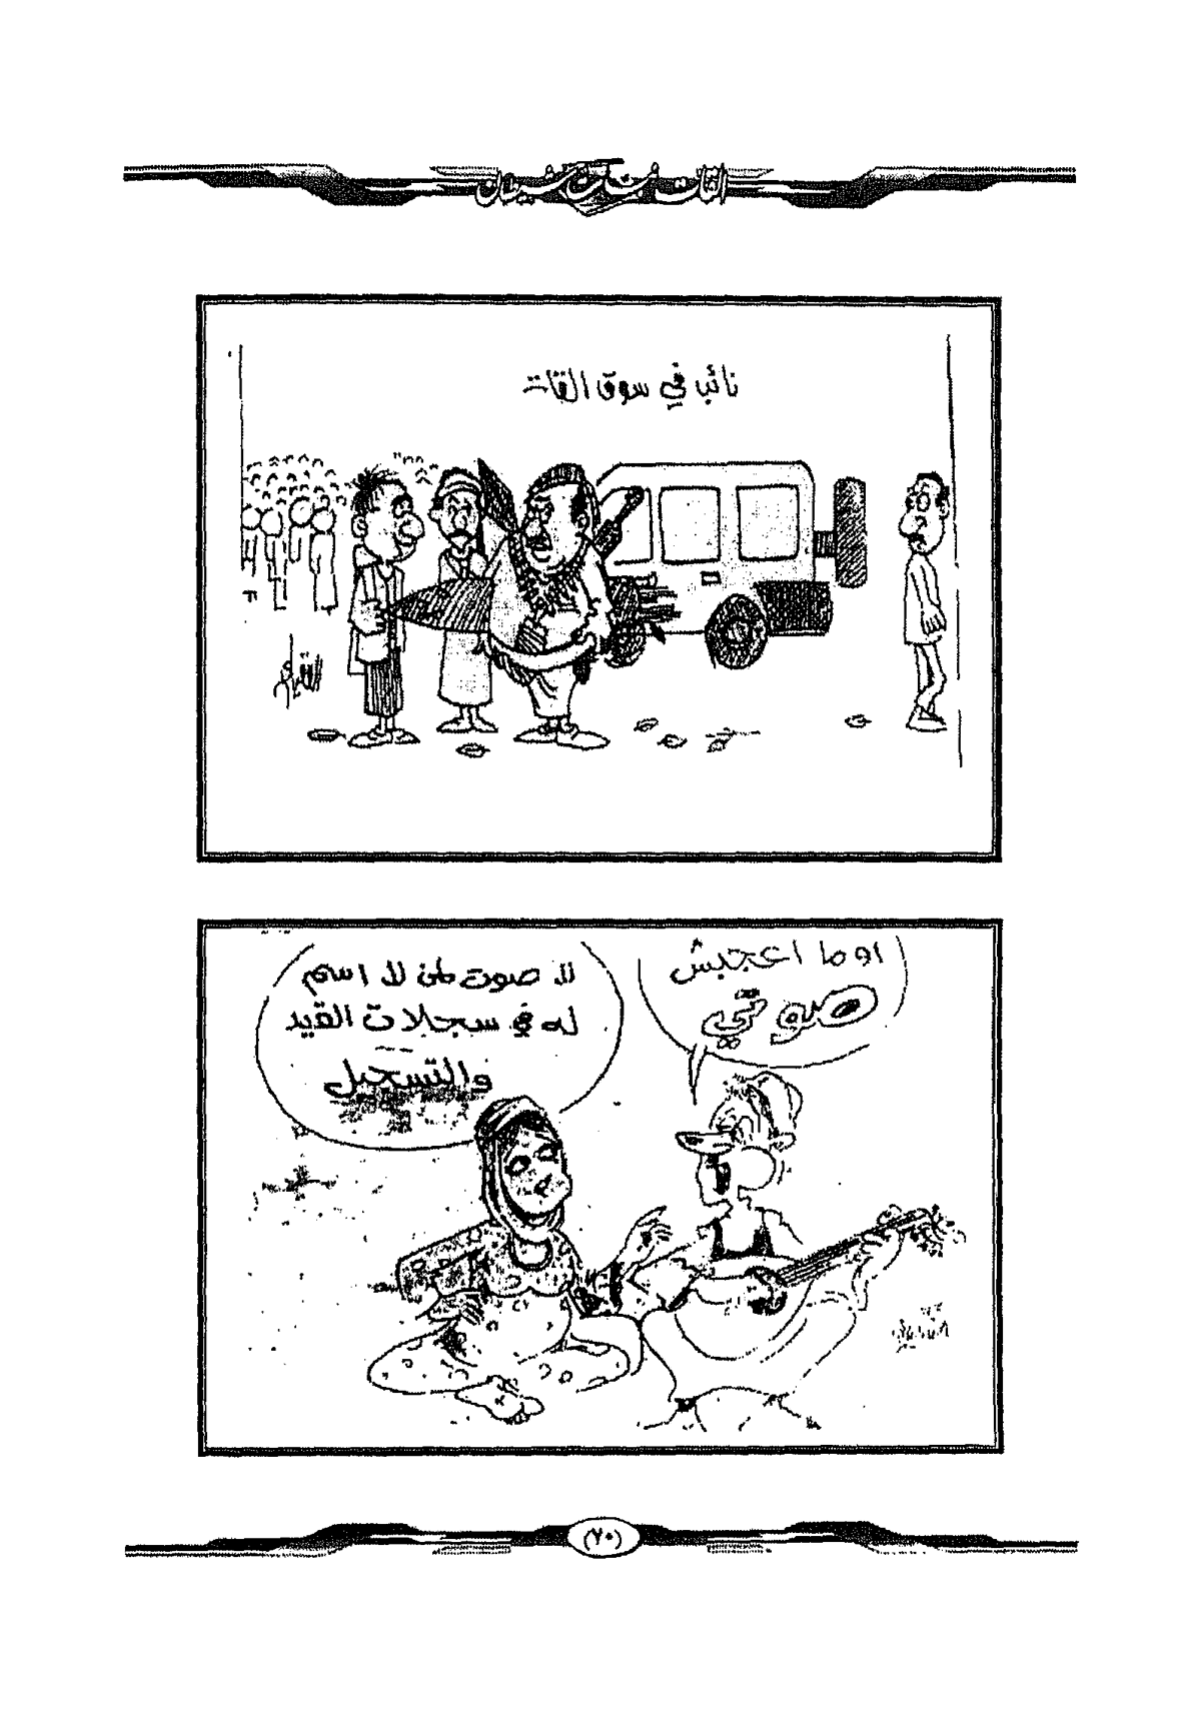 نائب في سوق القات
او ما اعجبش
صوتي
لا صوت لمن لا اسم
له في سجلات القيد
والتسجيل
(٧٠)